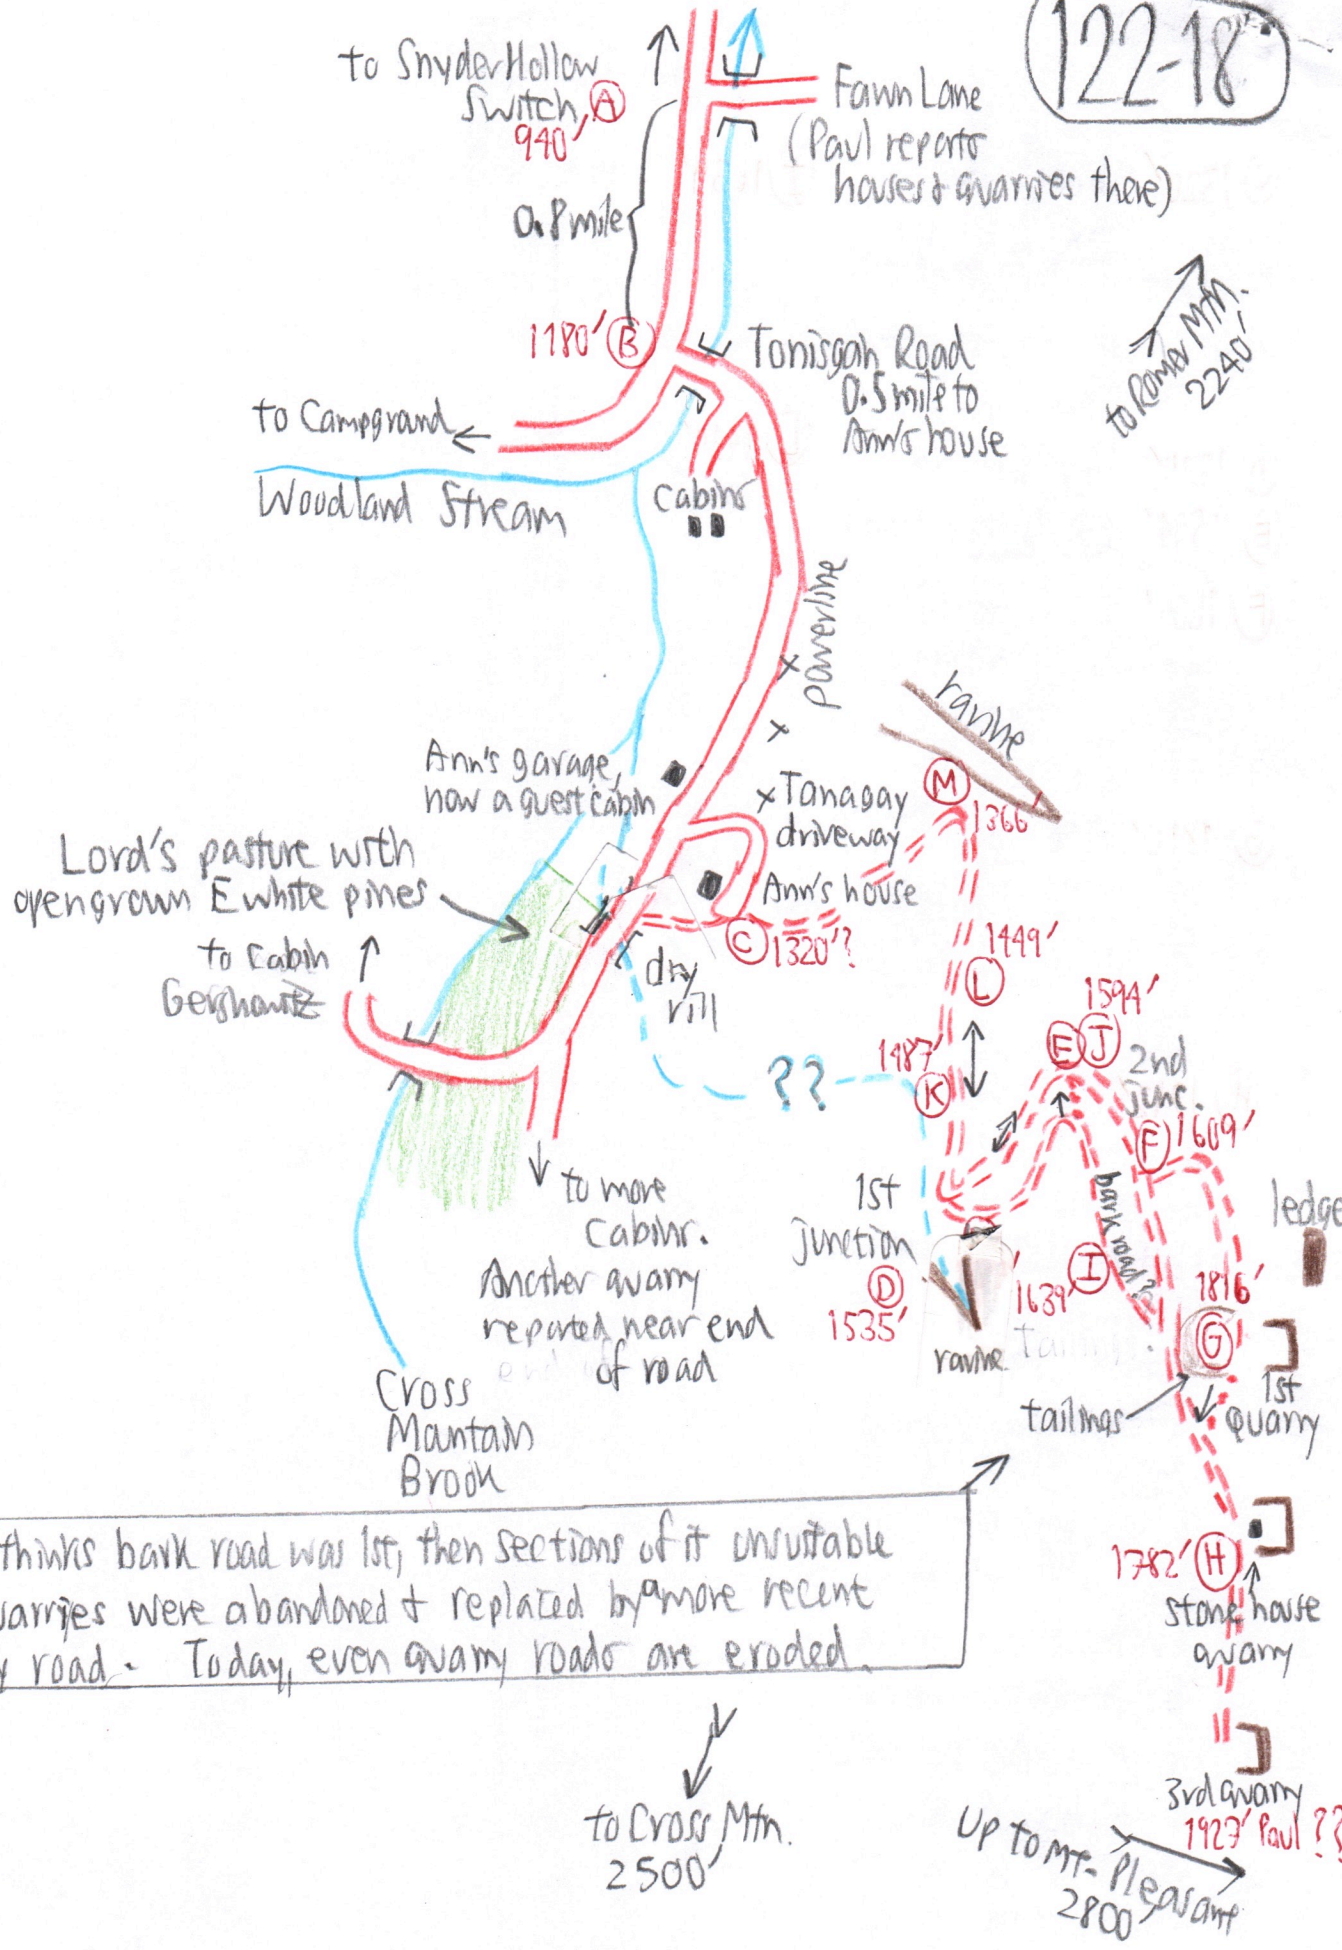 122-18
to Snyder Hollow
Switch, A
940'
Fawn Lane
(Paul reports
houses & quarries there)
0.8 mile
to Romer Mtn.
2240'
1180' B
Tonisgah Road
0.5 mile to
Ann's house
to Campground
Woodland Stream
Cabins
powerline
ravine
Ann's garage,
now a guest cabin
M
1366'
Tanagay
driveway
Lord's pasture with
opengrown E white pines
Ann's house
C 1320'?
to Cabin
Gershowitz
dry
rill
1449'
L
1594'
E J
2nd
junc.
1487'
K
??
F 1609'
to more
Cabins.
Another quarry
reported near end
of road
1st
junction
D
1535'
bark road?
ledge
1639' I
1816'
G
ravine
tailings
1st
quarry
Cross
Mountain
Brook
thinks bark road was 1st, then sections of it unsuitable
quarries were abandoned & replaced by a more recent
road. Today, even quarry roads are eroded.
1782' H
Stone house
quarry
3rd quarry
1927' Paul ??
to Cross Mtn.
2500'
Up to Mt. Pleasant
2800'